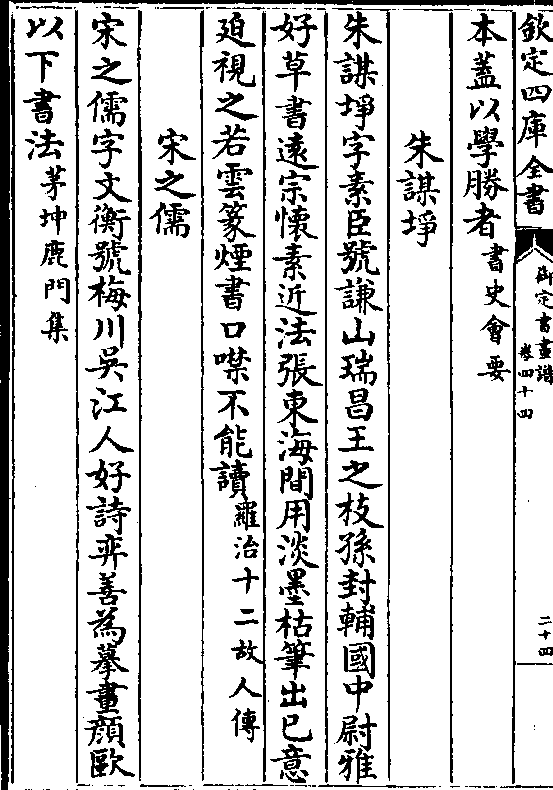 欽定四庫全書
御定書畫譜
卷四十四
二十四
本蓋以學勝者書史會要
朱謀㙔
朱謀㙔字素臣號謙山瑞昌王之枝孫封輔國中尉雅
好草書遠宗懷素近法張東海間用淡墨枯筆出已意
廹視之若雲篆煙書口噤不能讀羅治十二故人傳
宋之儒
宋之儒字文衡號梅川吳江人好詩弈善為摹畫顔歐
以下書法茅坤鹿門集